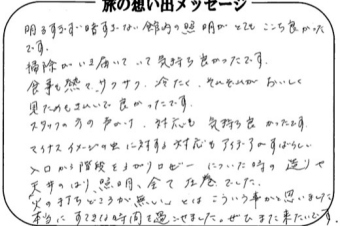 旅の想い出メッセージ
明るすぎず暗すぎない館内の照明がとてもここち良かった
です。
掃除がいき届いていて気持ち良かったです。
食事も熱々、サクサク、冷たく、それぞれがおいしく
見ためもきれいで良かったです。
スタッフの方の声かけ、対応も気持ち良かったです。
マイナスイメージの虫に対する対応もアイデアがすばらしい
入口から階段を上がりロビーについた時の造りや
天井のはり、照明、全て圧巻でした。
火の打ちどころが無いとはこういう事かと思いました
本当にすてきな時間を過ごせました。ぜひまた来たいです。